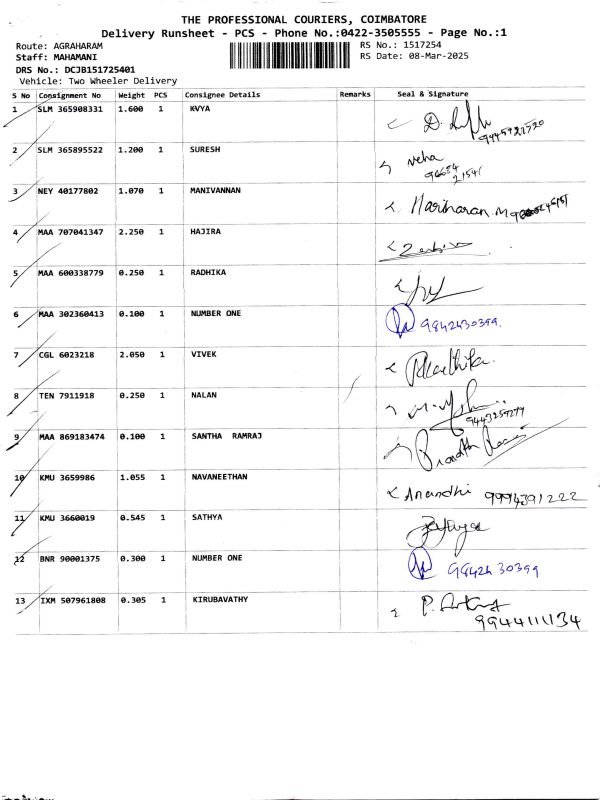 THE PROFESSIONAL COURIERS, COIMBATORE
Delivery Runsheet - PCS - Phone No.:0422-3505555 - Page No.:1
Route: AGRAHARAM RS No.: 1517254
Staff: MAHAMANI RS Date: 08-Mar-2025
DRS No.: DCJB151725401
Vehicle: Two Wheeler Delivery
S No Consignment No Weight PCS Consignee Details Remarks Seal & Signature
1 SLM 365908331 1.600 1 KVYA
2 SLM 365895522 1.200 1 SURESH neha
3 NEY 40177802 1.070 1 MANIVANNAN Hariharan.M
4 MAA 707041347 2.250 1 HAJIRA
5 MAA 600338779 0.250 1 RADHIKA
6 MAA 302360413 0.100 1 NUMBER ONE 9842430399.
7 CGL 6023218 2.050 1 VIVEK
8 TEN 7911918 0.250 1 NALAN
9 MAA 869183474 0.100 1 SANTHA RAMRAJ
10 KMU 3659986 1.055 1 NAVANEETHAN Anandhi 9994391222
11 KMU 3660019 0.545 1 SATHYA
12 BNR 90001375 0.300 1 NUMBER ONE 9842430399
13 IXM 507961808 0.305 1 KIRUBAVATHY 9944111134